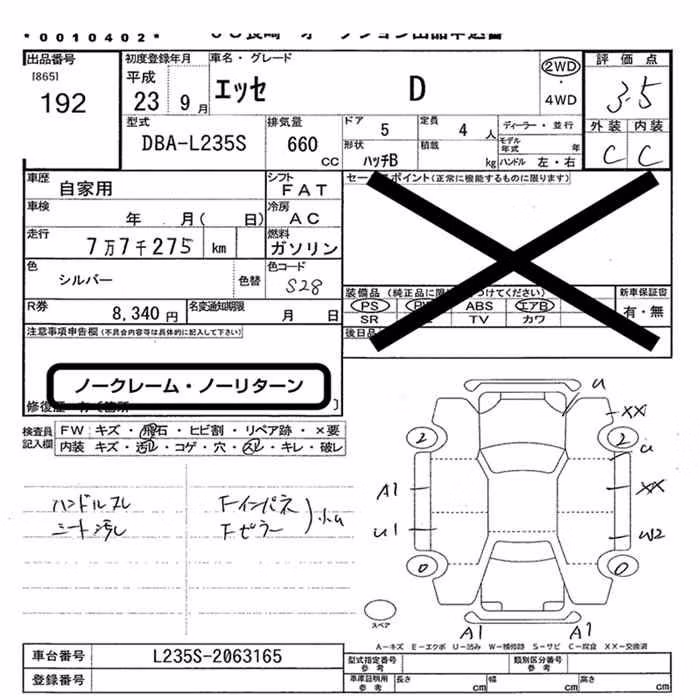 *0010402* JU長崎 オークション出品申込書
出品番号 初度登録年月 車名・グレード 2WD 評価点
[865] 平成 エッセ D ・ 3.5
192 23 9月 4WD
型式 排気量 ドア 5 定員 4人 ディーラー・並行 外装 内装
DBA-L235S 660 CC 形状 ハッチB 積載 kg モデル年式 年 C C
ハンドル 左・右
車歴 自家用 シフト FAT セールスポイント(正常に機能するものに限ります)
車検 年 月( 日) 冷房 AC
走行 7万7千275 km 燃料 ガソリン
色 シルバー 色替 色コード S28
装備品(純正品に限 つけてください) 新車保証書
R券 8,340円 名変通知期限 月 日 PS PW ABS エアB 有・無
SR TV カワ
注意事項申告欄(不具合内容等は具体的に記入して下さい) 後日品
ノークレーム・ノーリターン
修復歴 有(箇所 )
検査員 FW キズ・飛石・ヒビ割・リペア跡・×要
記入欄 内装 キズ・汚レ・コゲ・穴・スレ・キレ・破レ
u
XX
2 2
u
A1 XX
U1 W2
0 0
A1 A1
ハンドルスレ Fインパネ
シート汚レ Fピラー 小U
スペア
A-キズ E-エクボ U-凹み W-補修跡 S-サビ C-腐食 XX-交換済
車台番号 L235S-2063165 型式指定番号 参考 類別区分番号 参考
登録番号 車庫証明用 参考 長さ cm 幅 cm 高さ cm